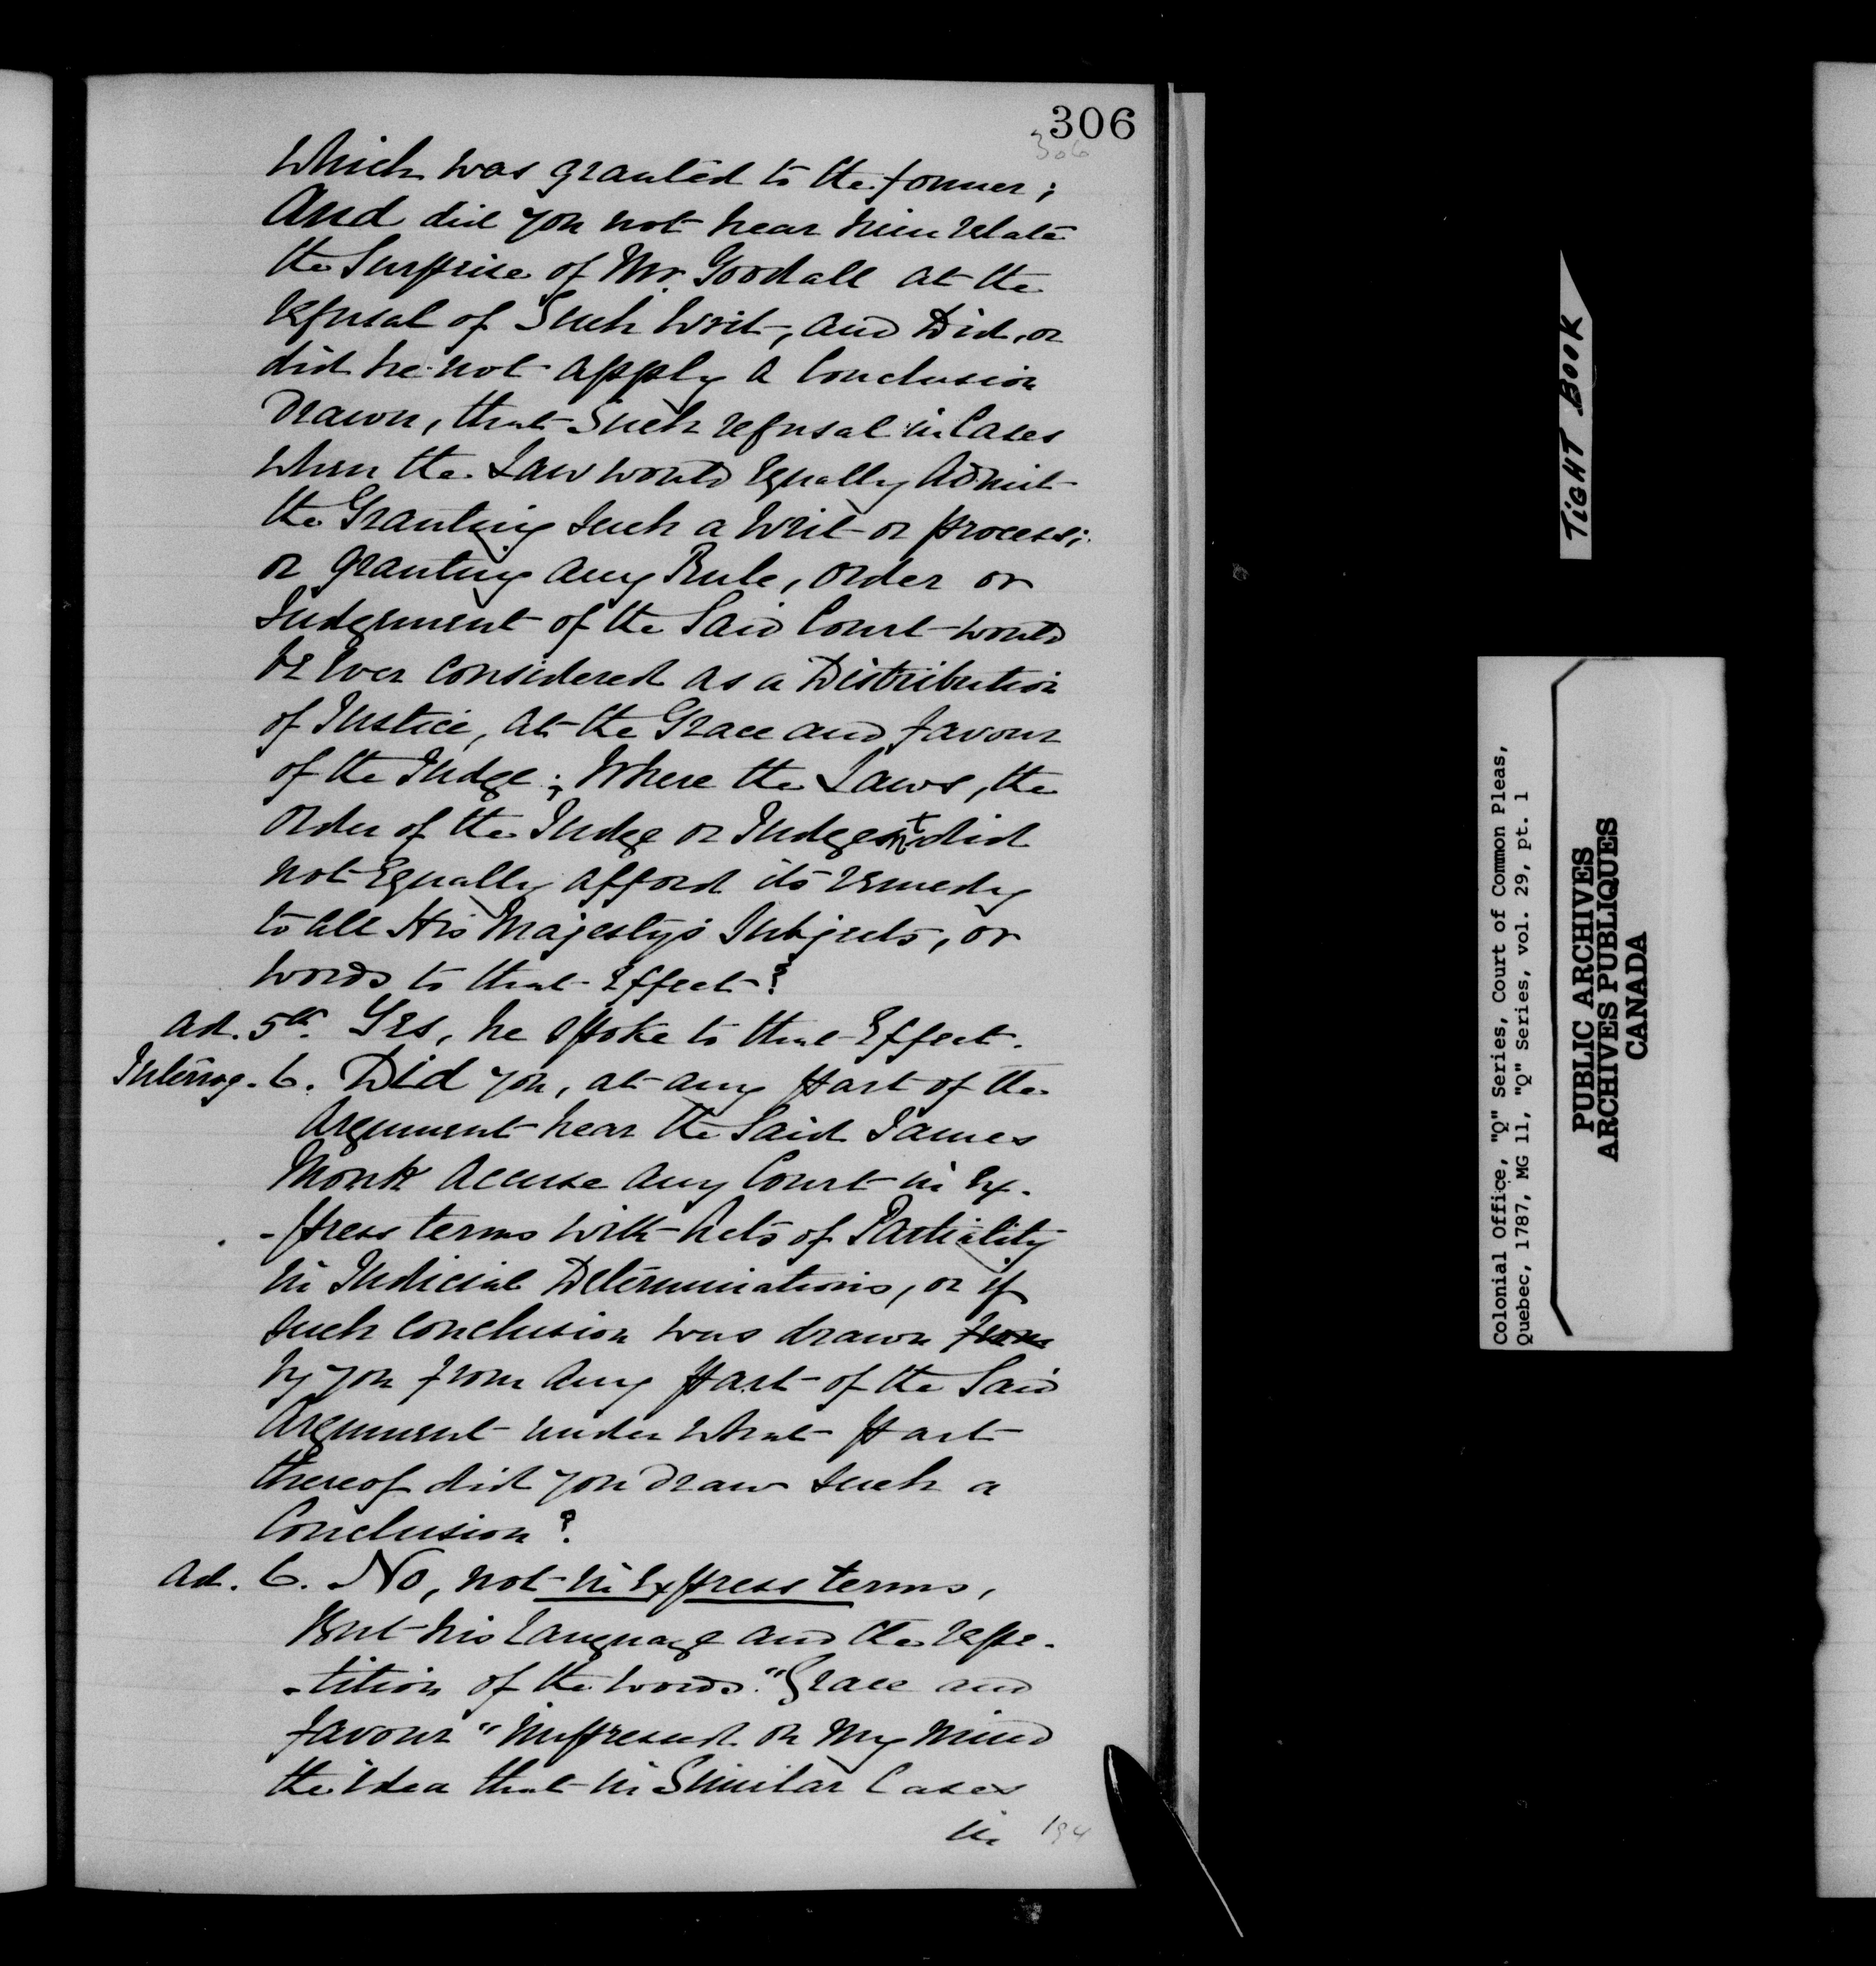 306
306
Which was granted to the former;
And did you not hear him relate
the Surprise of Mr. Goodall at the
refusal of Such Writ, and Did, or
did he not apply a Conclusion
drawn, that Such refusal in Cases
when the Law would Equally Admit
the Granting such a Writ or process;
or granting any Rule, Order or
Judgement of the Said Court would
be Ever Considered as a Distribution
of Justice, at the Grace and favour
of the Judge; Where the Laws, the
Order of the Judge or Judgemt did
not Equally afford its remedy
to all His Majesty's Subjects, or
words to that Effect?
Ad. 5th. Yes, he spoke to that Effect.
Interrog. 6. Did you, at any part of the
Argument hear the Said James
Monk accuse any Court in Ex-
-press terms with Acts of Partiality
in Judicial Determinations, or if
such conclusion was drawn from
by you from any part of the Said
Argument under what part
thereof did you draw such a
Conclusion?
Ad. 6. No, not in Express terms,
But his language and the repe-
-tition of the words "Grace and
favour" impressed on my mind
the idea that in Similar Cases
in
194
TIGHT BOOK
Colonial Office, "Q" Series, Court of Common Pleas,
Quebec, 1787, MG 11, "Q" Series, vol. 29, pt. 1
PUBLIC ARCHIVES
ARCHIVES PUBLIQUES
CANADA